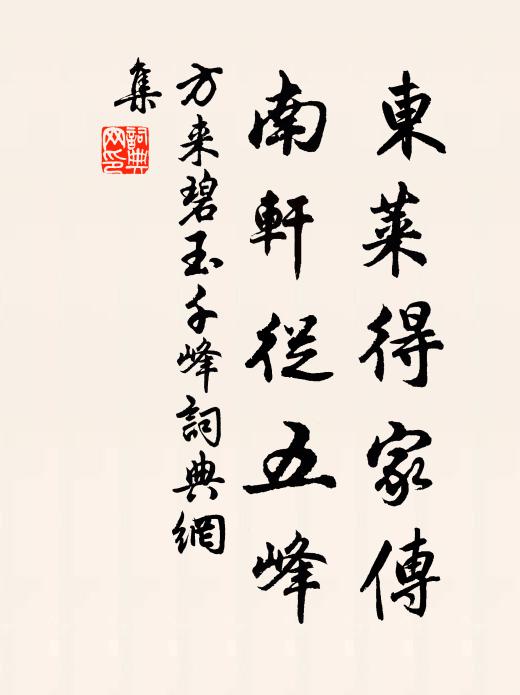 東萊得家傳
南軒從五峰
方来碧玉千峰詞典網
集
詞典
网印